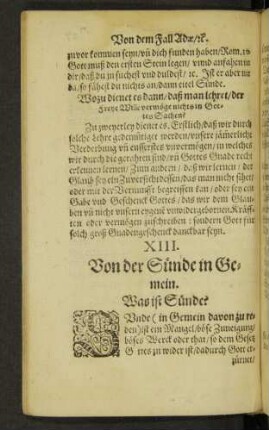 Von dem Fall Adæ/ꝛc.
zuvor kommen seyn/vñ dich funden haben/Rom. 10
Gott muß den ersten Stein legen/ vnnd anfahen in
dir/daß du jn suchest vnd duldest/ ꝛc. Ist er aber nit
da/so fähest du nichts an/dann eitel Sünde.
Wozu dienet es dann/daß man lehret/der
Freye Wille vermöge nichts in Got-
tes Sachen?
Zu zweyerley dienet es. Erstlich/daß wir durch
solche Lehre gedemütiget werden/vnsere jämerliche
Verderbung vñ eusserstes vnvermögen/ in welches
wir durch die gerahten sind/vñ Gottes Gnade recht
erkennen lernen/ Zum andern/ daß wir lernen / der
Glaub sey ein Zuversicht dessen/das man nicht sihet
oder mit der Vernunfft begreiffen kan / oder sey ein
Gabe vnd Geschenck Gottes / das wir dem Glau-
ben vñ nicht vnsern eygenē vnwidergebornen Kräff-
ten oder vermögen zuschreiben : sondern Gott für
solch groß Gnadengeschenck danckbar seyn.
XIII.
Von der Sünde in Ge-
mein.
Was ist Sünde?
Ünde ( in Gemein davon zu re-
den) ist ein Mangel/böse Zuneigung
böses Werck oder that/ so dem Gesetz
Gottes zu wider ist/dadurch Gott er-
zürnet/